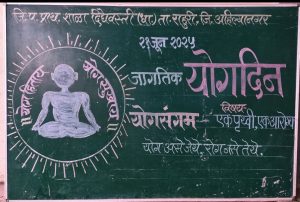 जि.प.प्राथ. शाळा दिघेवस्ती (धा) ता.राहुरी, जि.अहिल्यानगर
२१ जून २०२५
जागतिक योगदिन
योगसंगम -
विषय:
एक पृथ्वी, एक आरोग्य
योग असे जेथे, रोग नसे तेथे.